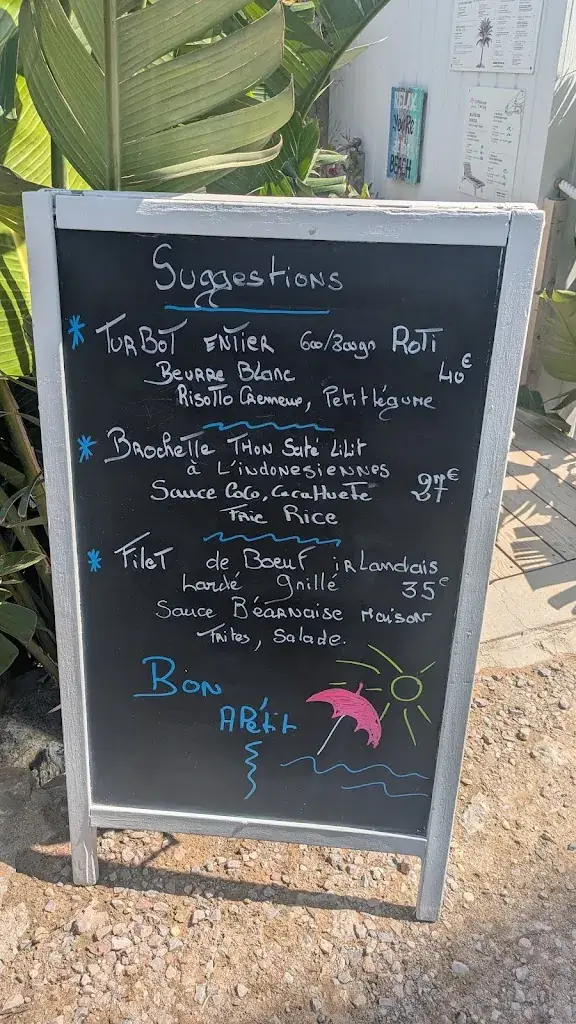 Suggestions
* TURBOT ENTIER 600/800gn ROTI
BEURRE Blanc 40€
Risotto Crémeux, Petit légume
* BROCHETTE THON Saté Lilit
à L'INDONESIENNES
Sauce Coco, Cacahuète 27€
Fric RICE
* FILET de BOEUF iRLandais
Lardé grillé 35€
Sauce BÉARNAISE MAISON
Frites, Salade.
BON
APétit
RELAX
YOU'RE
BEACH